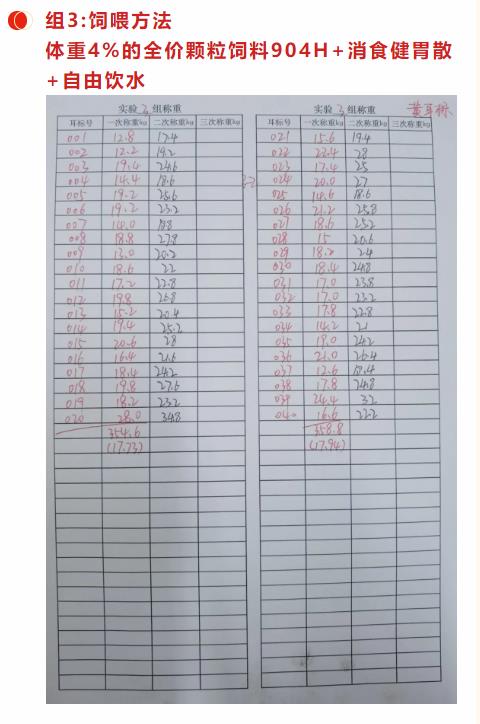 组3:饲喂方法
体重4%的全价颗粒饲料904H+消食健胃散
+自由饮水
实验 3 组称重
耳标号 一次称重kg 二次称重kg 三次称重kg
001 12.8 17.4
002 12.2 19.2
003 19.4 24.6
004 14.4 18.6
005 19.2 25.6
006 19.2 23.2
007 14.0
008 18.8 27.8
009 13.0 20.2
010 18.6 22
011 17.2 22.8
012 19.8 26.8
013 15.2 20.4
014 19.4 25.2
015 20.6 28
016 16.4 21.6
017 18.4 24.2
018 19.8 27.6
019 18.2 23.2
020 28.0 34.8
354.6
(17.73)
实验 3 组称重 黄耳标
耳标号 一次称重kg 二次称重kg 三次称重kg
021 15.6 19.4
022 22.4 28
023 17.4 25
024 20.0 27
025 14.6 18.6
026 21.2 25.8
027 18.6 25.2
028 15 20.6
029 18.2 24
030 18.4 24.8
031 17.0 23.8
032 17.0 23.2
033 17.8 22.8
034 14.2 21
035 19.0 24.2
036 21.0 26.4
037 12.6 18.4
038 17.8 24.8
039 24.4 32
040 16.6 22.2
358.8
(17.94)